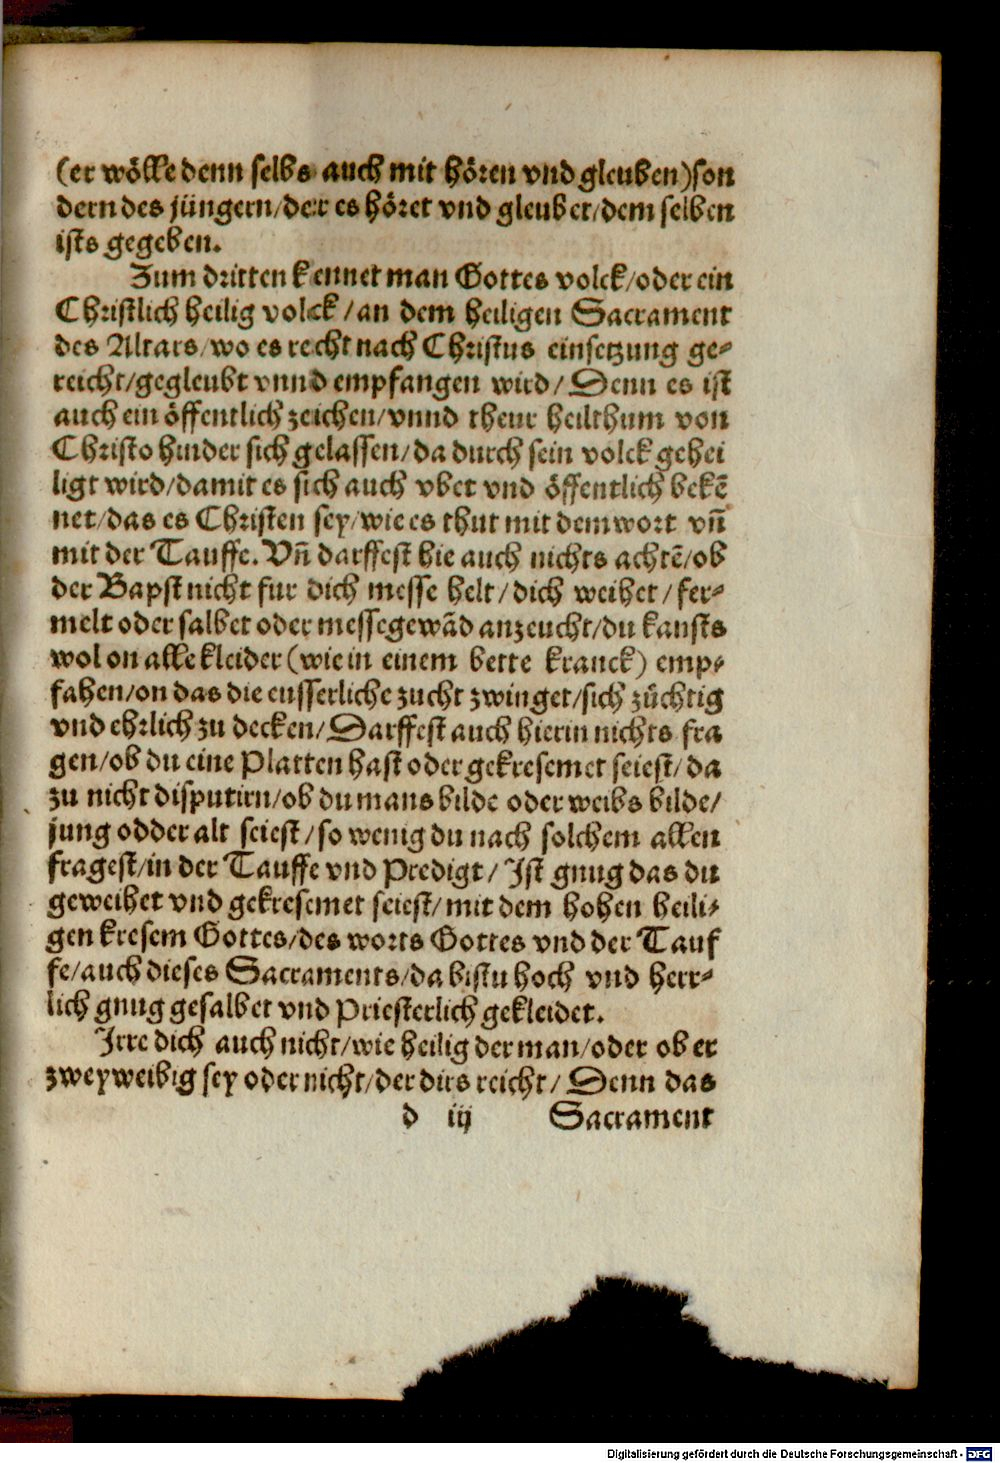 (er wölle denn selbs auch mit hören vnd gleuben)son
dern des jüngern/der es höret vnd gleubet/dem selben
ists gegeben.
Zum dritten kennet man Gottes volck/oder ein
Christlich heilig volck/an dem heiligen Sacrament
des Altars/wo es recht nach Christus einsetzung ge-
reicht/gegleubt vnnd empfangen wird/Denn es ist
auch ein öffentlich zeichen/vnnd theur heilthum von
Christo hinder sich gelassen/da durch sein volck gehei
ligt wird/damit es sich auch vbet vnd öffentlich bekē
net/das es Christen sey/wie es thut mit dem wort vn̄
mit der Tauffe. Vn̄ darffest hie auch nichts achtē/ob
der Bapst nicht fur dich messe helt/dich weihet/fer-
melt oder salbet oder messegewād anzeucht/du kansts
wol on alle kleider (wie in einem bette kranck) emp-
fahen/on das die eusserliche zucht zwinget/sich züchtig
vnd ehrlich zu decken/Darffest auch hierin nichts fra
gen/ob du eine Platten hast oder gekresemet seiest/da
zu nicht disputirn/ob du mans bilde oder weibs bilde/
jung odder alt seiest/so wenig du nach solchem allen
fragest/in der Tauffe vnd Predigt/Ist gnug das du
geweihet vnd gekresemet seiest/mit dem hohen heili-
gen kresem Gottes/des worts Gottes vnd der Tauf
fe/auch dieses Sacraments/da bistu hoch vnd herr-
lich gnug gesalbet vnd Priesterlich gekleidet.
Irre dich auch nicht/wie heilig der man/oder ob er
zweyweibig sey oder nicht/der dirs reicht/Denn das
d iij Sacrament
Digitalisierung gefördert durch die Deutsche Forschungsgemeinschaft - DFG